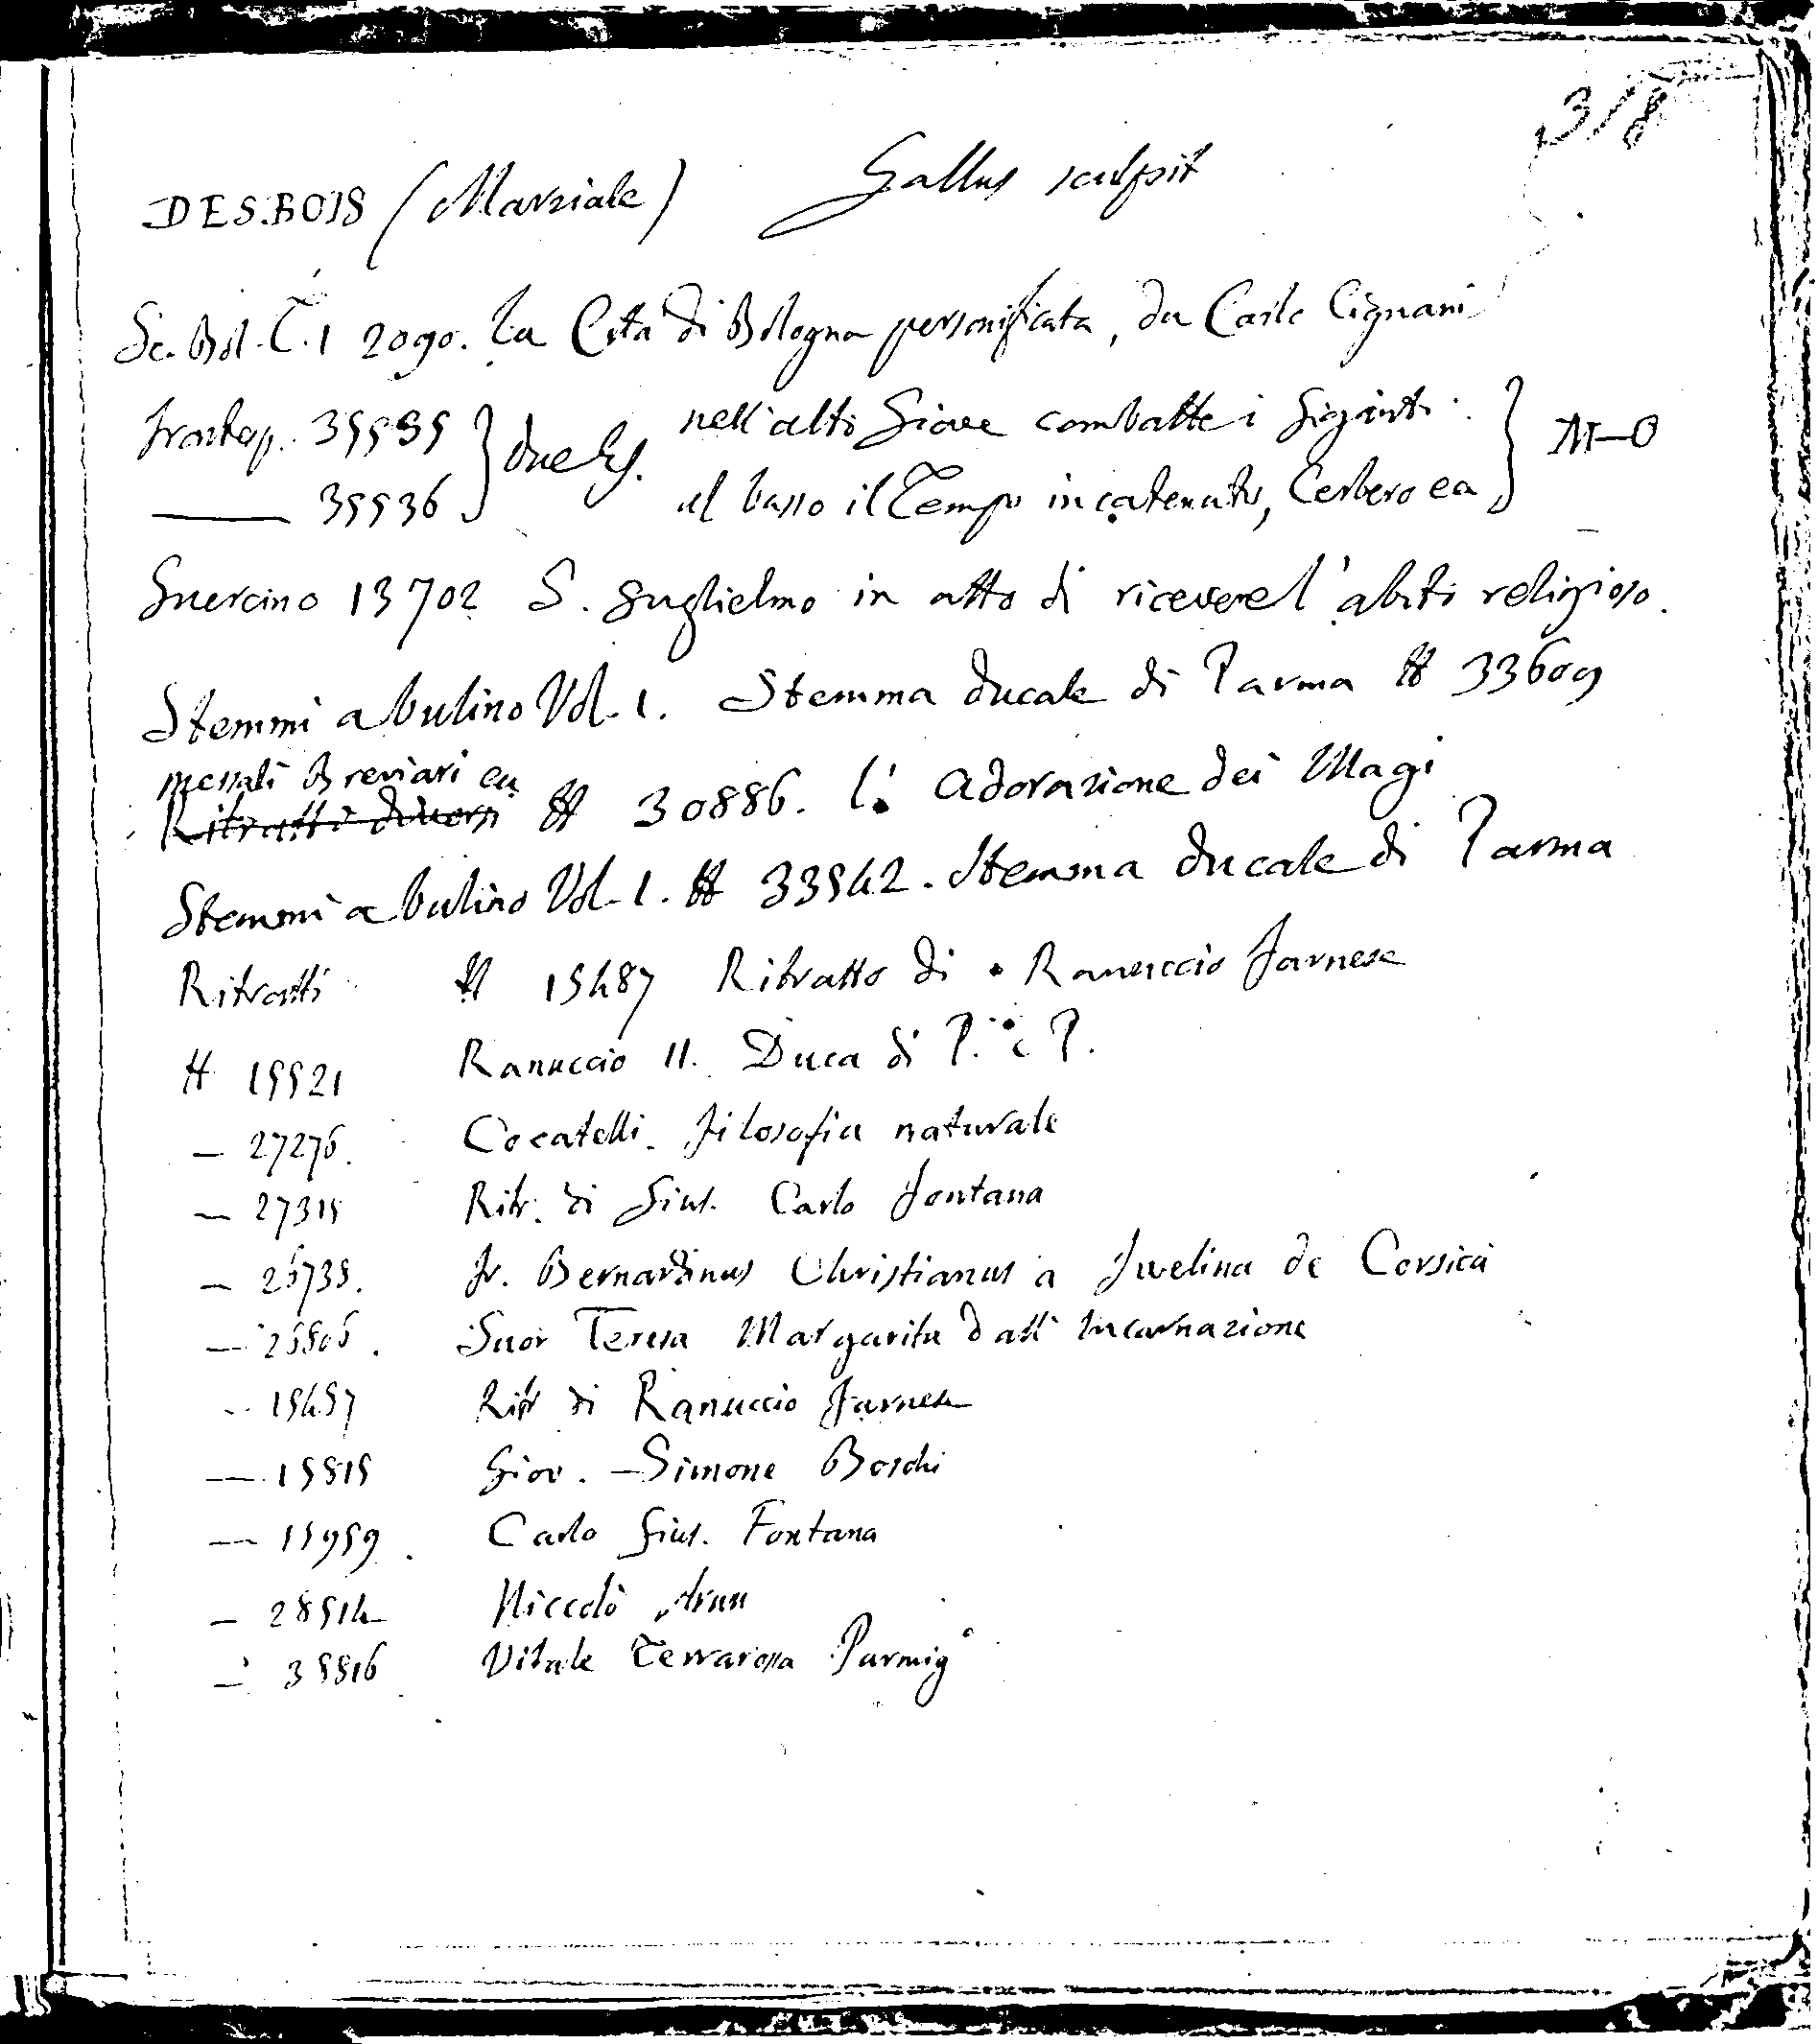 318
DESBOIS (Marziale) Gallus sculpsit
Sc. Bol. T. 1 2090. La Cità di Bologna personificata, da Carlo Cignani
frontesp. 35535 } due Es. nell'alto Giove combatte i Giganti. } M—O
—— 35536 al basso il Tempo incatenato, Cerbero ea
Guercino 13702 S. Guglielmo in atto di ricevere l'abito religioso.
Stemmi a bulino Vol. 1. Stemma ducale di Parma # 33609
messali Breviari ea
Ritratti diversi # 30886. L'Adorazione dei Magi
Stemmi a bulino Vol. 1. # 33542. Stemma ducale di Parma
Ritratti # 15487 Ritratto di Ranuccio Farnese
# 15521 Ranuccio II. Duca di P. e P.
— 27276. Cocatelli. Filosofia naturale
— 27315 Ritr. di Gius. Carlo Fontana
— 26738. Fr. Bernardinus Christianus a Ivelina de Corsica
— 26806. Suor Teresa Margarita dall'Incarnazione
— 15457 Ritr di Ranuccio Farnese
— 15815 Giov. Simone Boschi
— 15959. Carlo Gius. Fontana
— 28514 Niccolò
— 35816 Vitale Terrarossa Parmigº